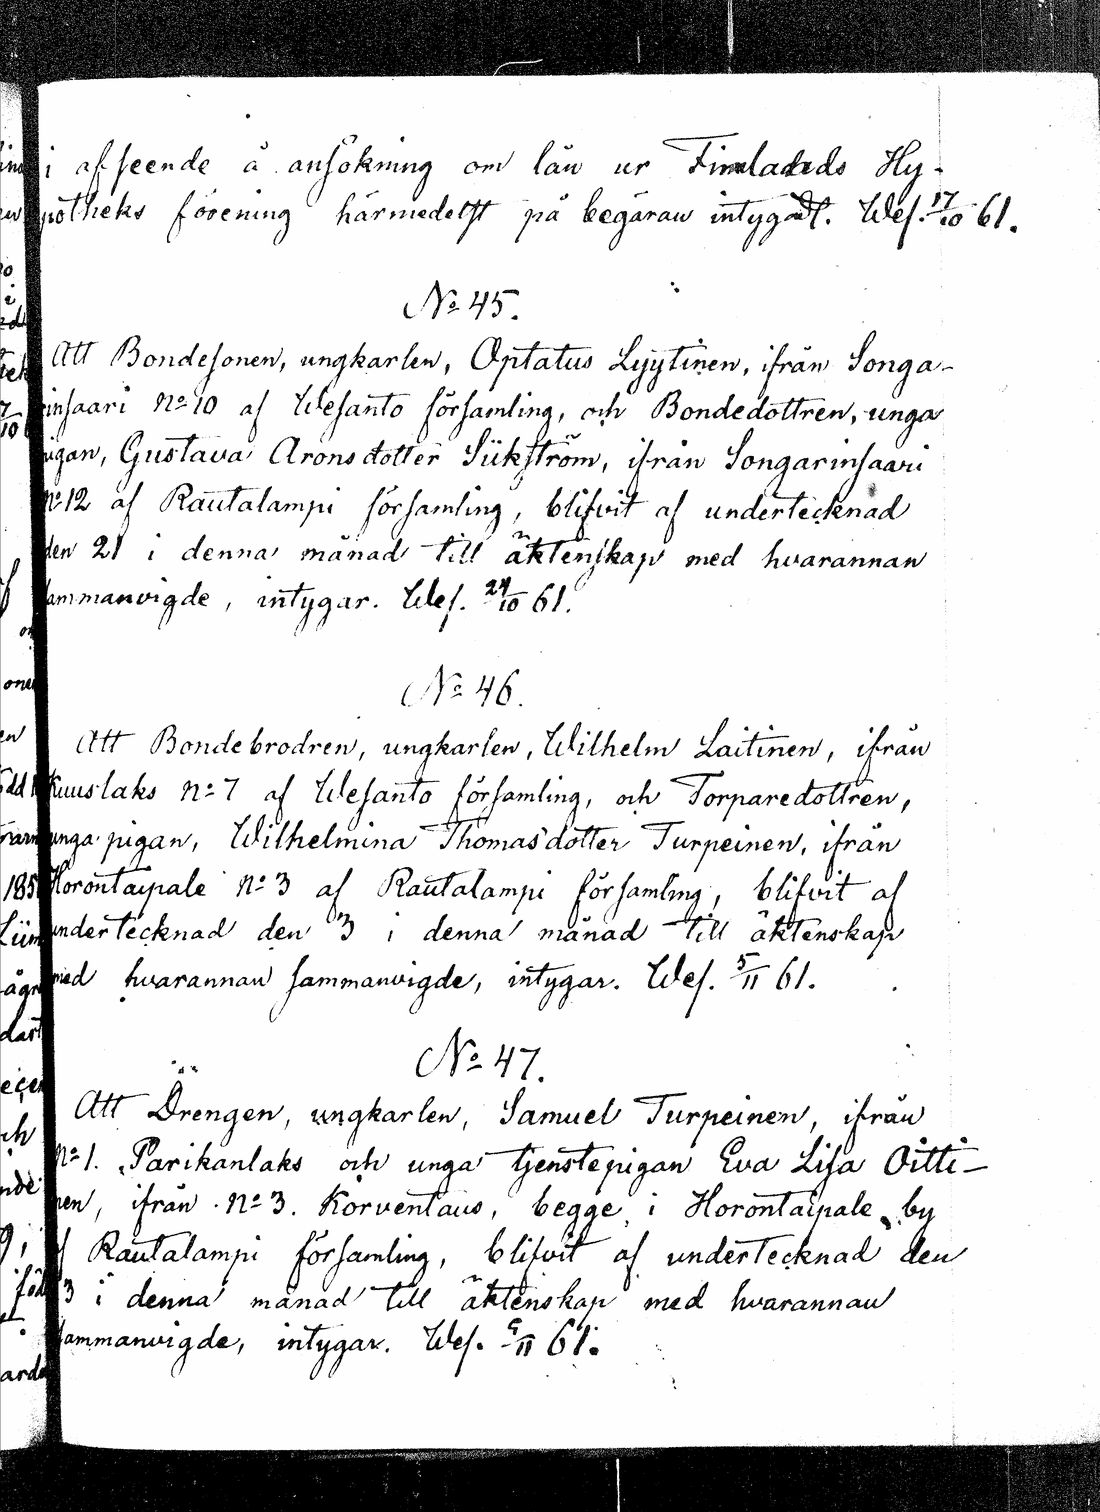 i afseende å ansökning om lån ur Finlands Hy-
potheks förening härmedelst på begäran intygadt. Wes. 17/10 61.
No 45.
Att Bondesonen, ungkarlen, Optatus Lyytinen, ifrån Songa-
rinsaari No 10 af Wesanto församling, och Bondedottren, unga
pigan, Gustava Aronsdotter Sükström, ifrån Songarinsaari
No 12 af Rautalampi församling, blifvit af undertecknad
den 21 i denna månad till äktenskap med hvarannan
sammanvigde, intygar. Wes. 24/10 61.
No 46.
Att Bondebrodren, ungkarlen, Wilhelm Laitinen, ifrån
Kuuslaks No 7 af Wesanto församling, och Torparedottren,
unga pigan, Wilhelmina Thomasdotter Turpeinen, ifrån
Horontaipale No 3 af Rautalampi församling, blifvit af
undertecknad den 3 i denna månad till äktenskap
med hvarannan sammanvigde, intygar. Wes. 5/11 61.
No 47.
Att Drengen, ungkarlen, Samuel Turpeinen, ifrån
No 1. Parikanlaks och unga tjenstepigan Eva Lisa Oitti-
nen, ifrån No 3. Korventaus, begge i Horontaipale by
af Rautalampi församling, blifvit af undertecknad den
3 i denna månad till äktenskap med hvarannan
sammanvigde, intygar. Wes. 5/11 61.